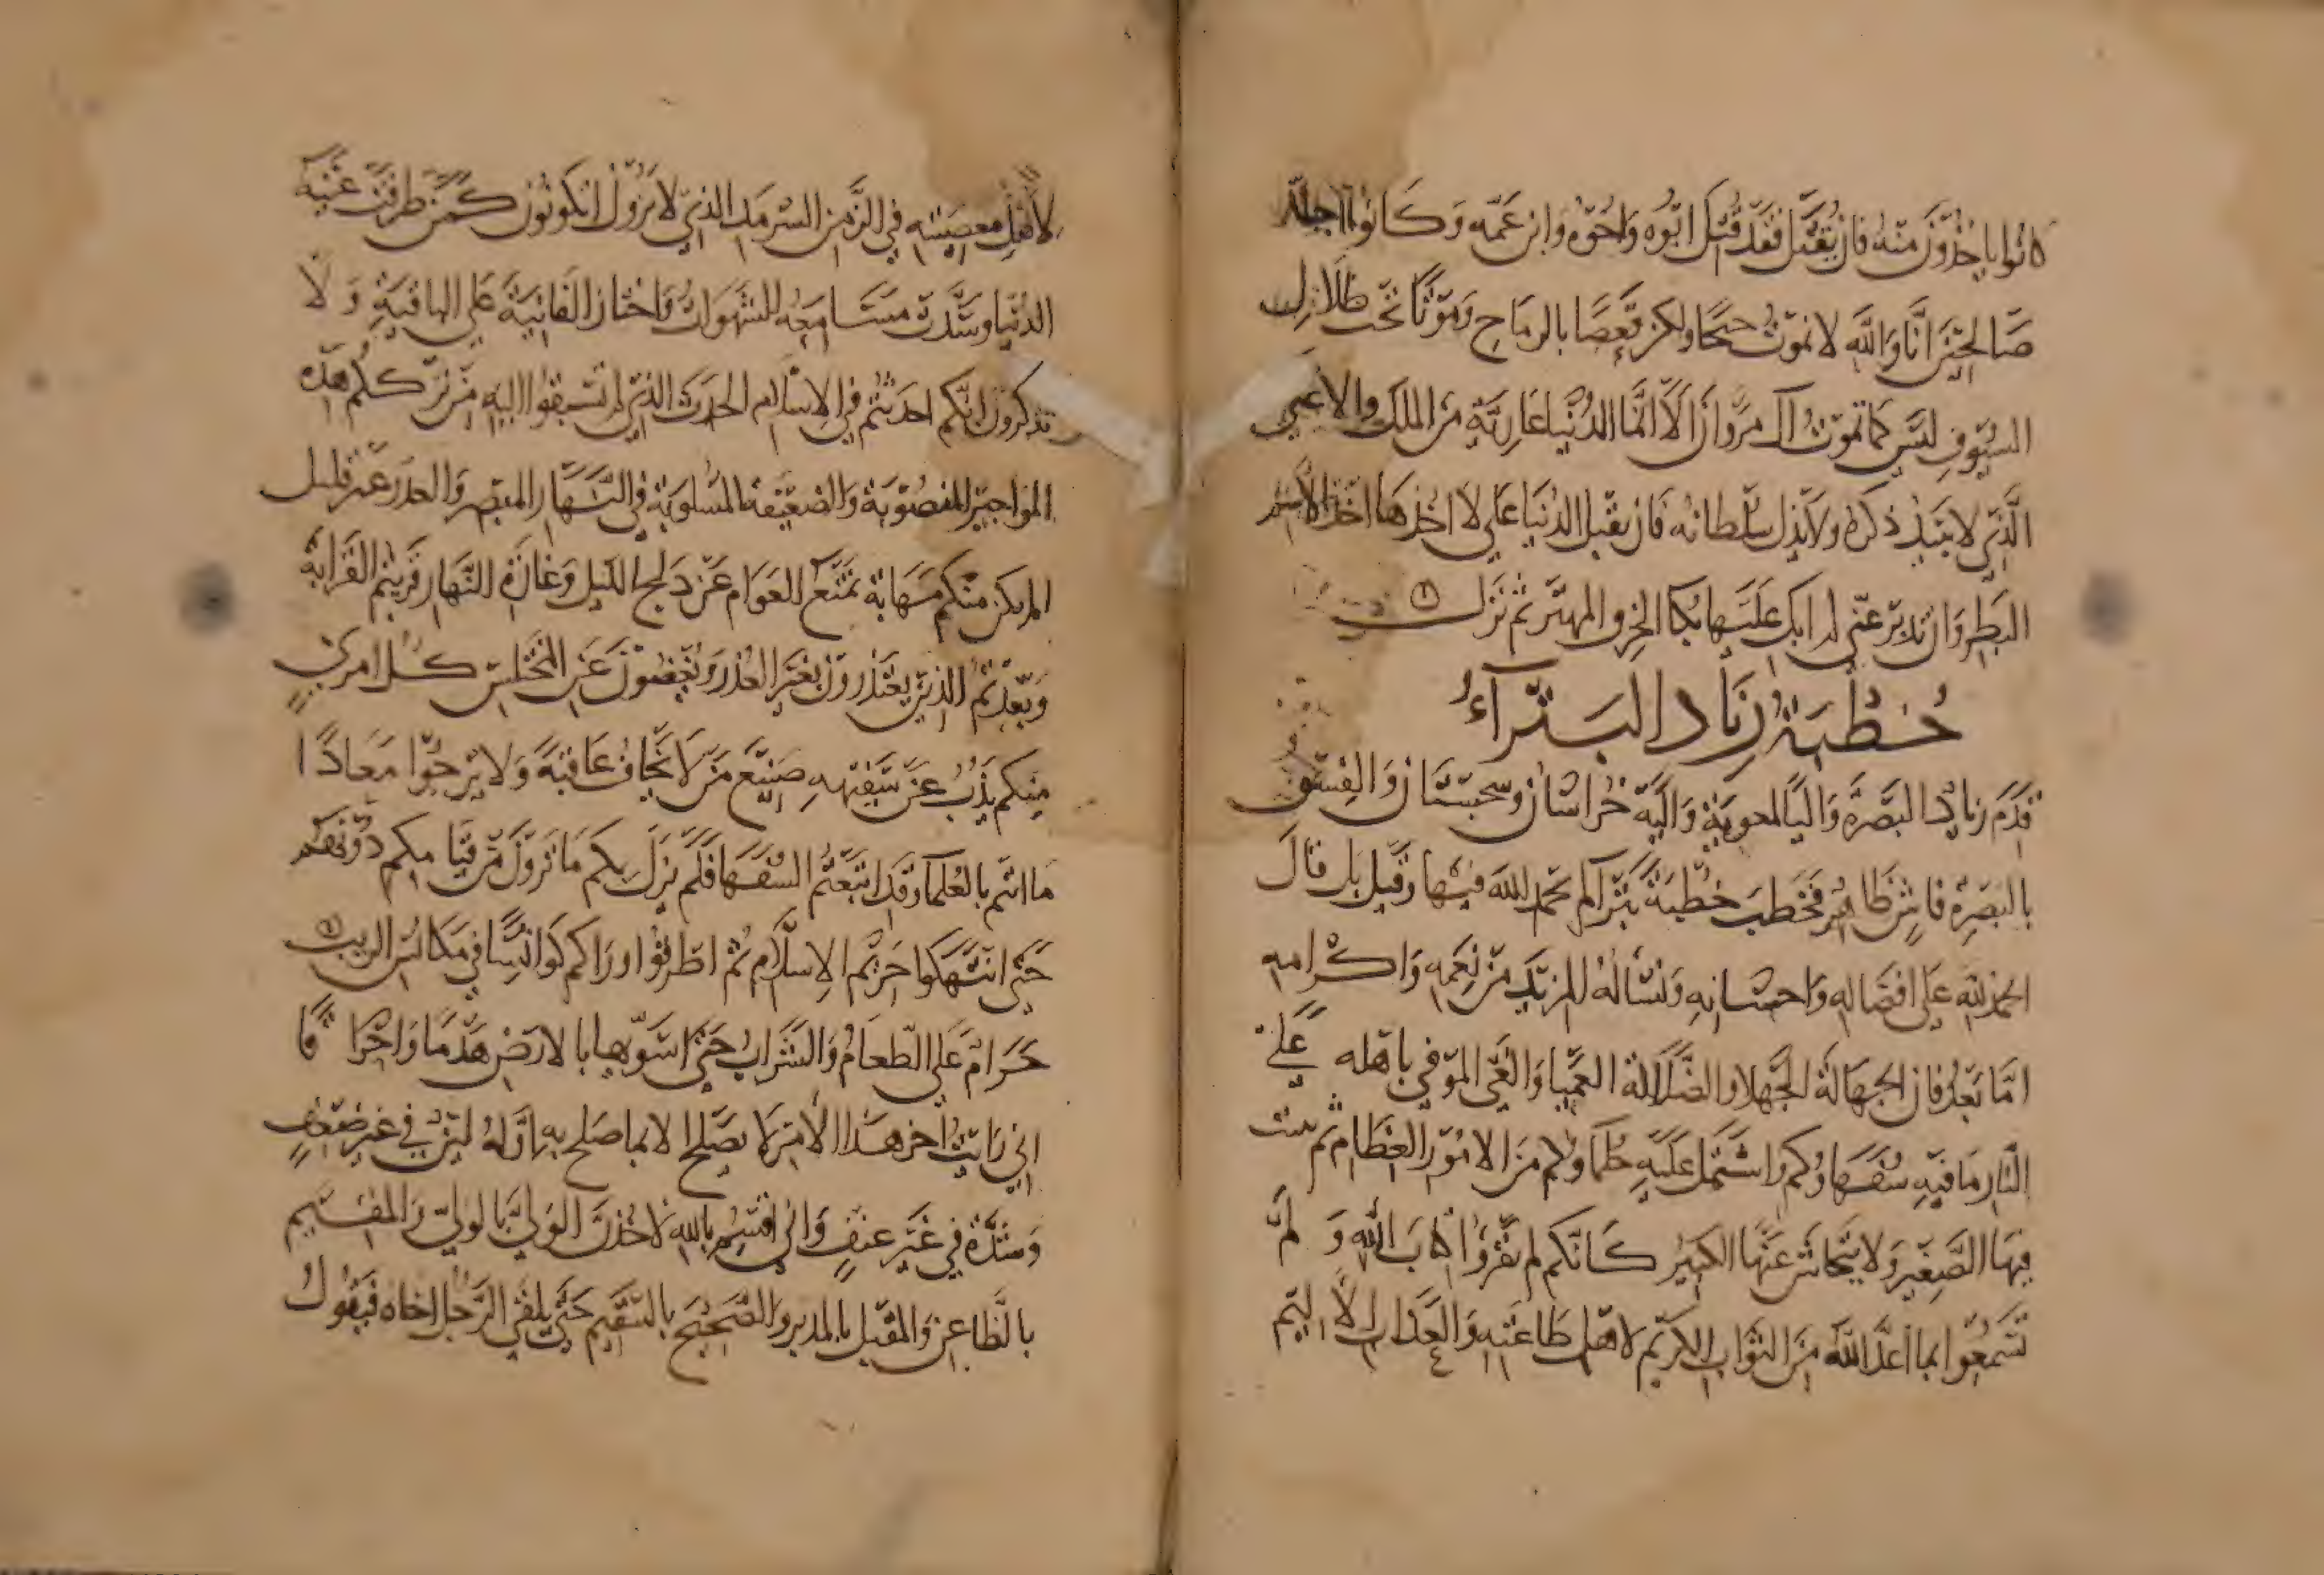 كانوا ياخذون منه فان يقتل فقد قتل ابوه واخوه وابن عمه وكانوا اجلة
صالحين انا والله لا نموت حبجا ولكن قعصا بالرماح وموتا تحت ظلال
السيوف ليس كما تموت ال مروان الا انما الدنيا عارية من الملك والاعلى
الذي لا يبيد ذكره ولا يذل سلطانه فان تقبل الدنيا علي لا اخذها اخذ الاشر
البطر وان تدبر عني لم ابك عليها بكا الخرف المهتر ثم نزل
خطبة زياد البتراء
قدم زياد البصرة واليا لمعوية واليه خراسان وسجستان والفسق
بالبصرة فاش ظاهر فخطب خطبة بترا لم يحمد الله فيها وقيل بل قال
الحمد لله على افضاله واحسانه ونساله المزيد من نعمه واكرامه
اما بعد فان الجهالة الجهلا والضلالة العميا والغي الموفي باهله على
النار ما فيه سفهاوكم واشتمل عليه حلماوكم من الامور العظام ينبت
فيها الصغير ولا يتحاشى عنها الكبير كانكم لم تقروا كتاب الله ولم
تسمعوا بما اعد الله من الثواب الكريم لاهل طاعته والعذاب الاليم
لاهل معصيته في الزمن السرمد الذي لا يزول اتكونون كمن طرفت عينيه
الدنيا وسدت مسامعه الشهوات واختار الفانية على الباقية ولا
تذكرون انكم احدثتم في الاسلام الحدث الذي لم تسبقوا اليه من ترككم هذه
المواخير المنصوبة والضعيفة المسلوبة في النهار المبصر والعدد غير قليل
الم يكن منكم نهاة تمنع العوام عن دلج الليل وغارة النهار قربتم القرابة
وبعدتم الذين يعتذرون بغير العذر ويغضون عن المختلس كل امرئ
منكم يذب عن سفيهه صنيع من لا يخاف عاقبة ولا يرجوا معادا
ما انتم بالعلما وقد اتبعتم السفها فلم يزل بكم ما ترون من قيامكم دونهم
حتى انتهكوا حرم الاسلام ثم اطرقوا وراكم كوانسا في مكانس الريب
حرام علي الطعام والشراب حتى اسويها بالارض هدما واحراقا
اني رايت اخر هذا الامر لا يصلح الا بما صلح به اوله لين في غير ضعف
وشدة في غير عنف واني اقسم بالله لاخذن الولي بالولي والمقيم
بالظاعن والمقبل بالمدبر والصحيح بالسقيم حتى يلقى الرجل اخاه فيقول